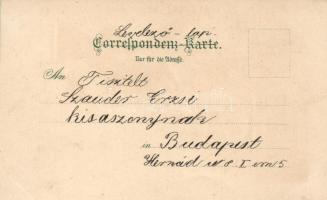 Levelező - lap.
Correspondenz-Karte.
Nur für die Adresse.
An Tisztelt
Szauder Erzse
kisaszonynak
in Budapest
Hernád u 8. I em 5